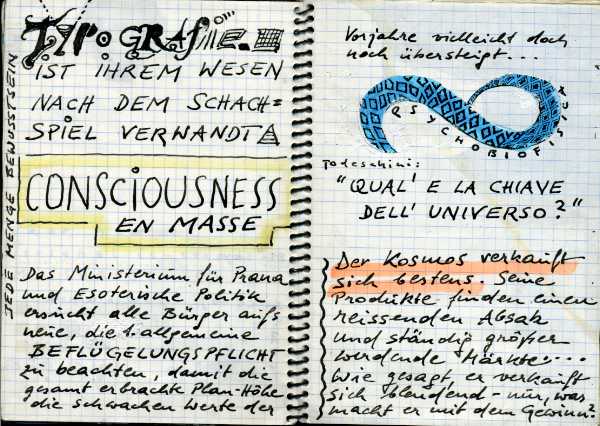 TYPOGRAFIE.
IST IHREM WESEN
NACH DEM SCHACH=
SPIEL VERWANDT
JEDE MENGE BEWUSSTSEIN
CONSCIOUSNESS
EN MASSE
Das Ministerium für Prana
und Esoterische Politik
ersucht alle Bürger aufs
neue, die 1. allgemeine
BEFLÜGELUNGSPFLICHT
zu beachten, damit die
gesamt erbrachte Plan-Höhe
die schwachen Werte der
Vorjahre vielleicht doch
noch übersteigt...
PSYCHOBIOFISICA
Todeschini:
"QUAL' E LA CHIAVE
DELL' UNIVERSO?"
Der Kosmos verkauft
sich bestens. Seine
Produkte finden einen
reissenden Absatz
und ständig größer
werdende Märkte...
Wie gesagt, er verkauft
sich blendend - nur, was
macht er mit dem Gewinn?